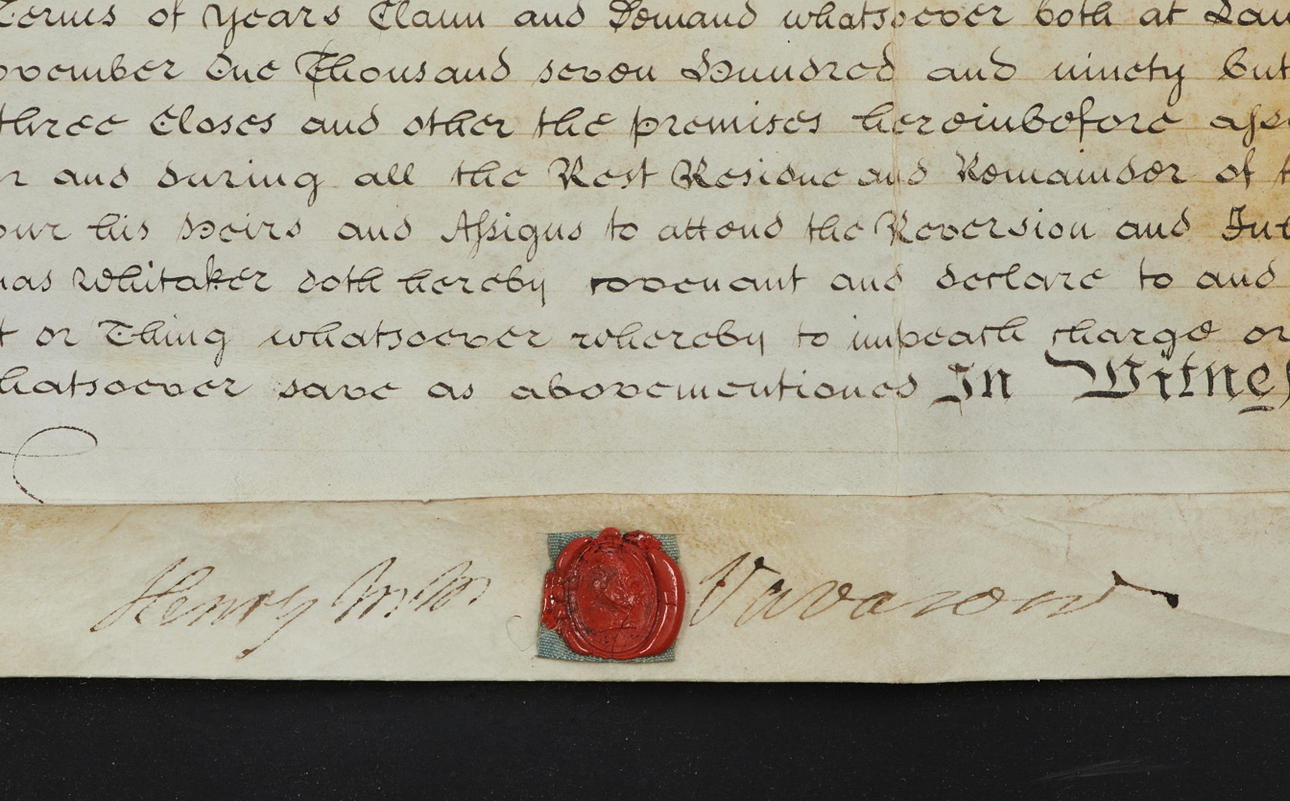 Terms of Years Claim and Demand whatsoever both at Law
ovember One Thousand seven Hundred and ninety but
three Closes and other the premises hereinbefore ass
r and during all the Rest Residue and Remainder of t
our his Heirs and Assigns to attend the Reversion and Int
as Whitaker doth hereby covenant and declare to and
t or Thing whatsoever whereby to impeach charge or
hatsoever save as abovementioned In Witnes
Henry Vavasour